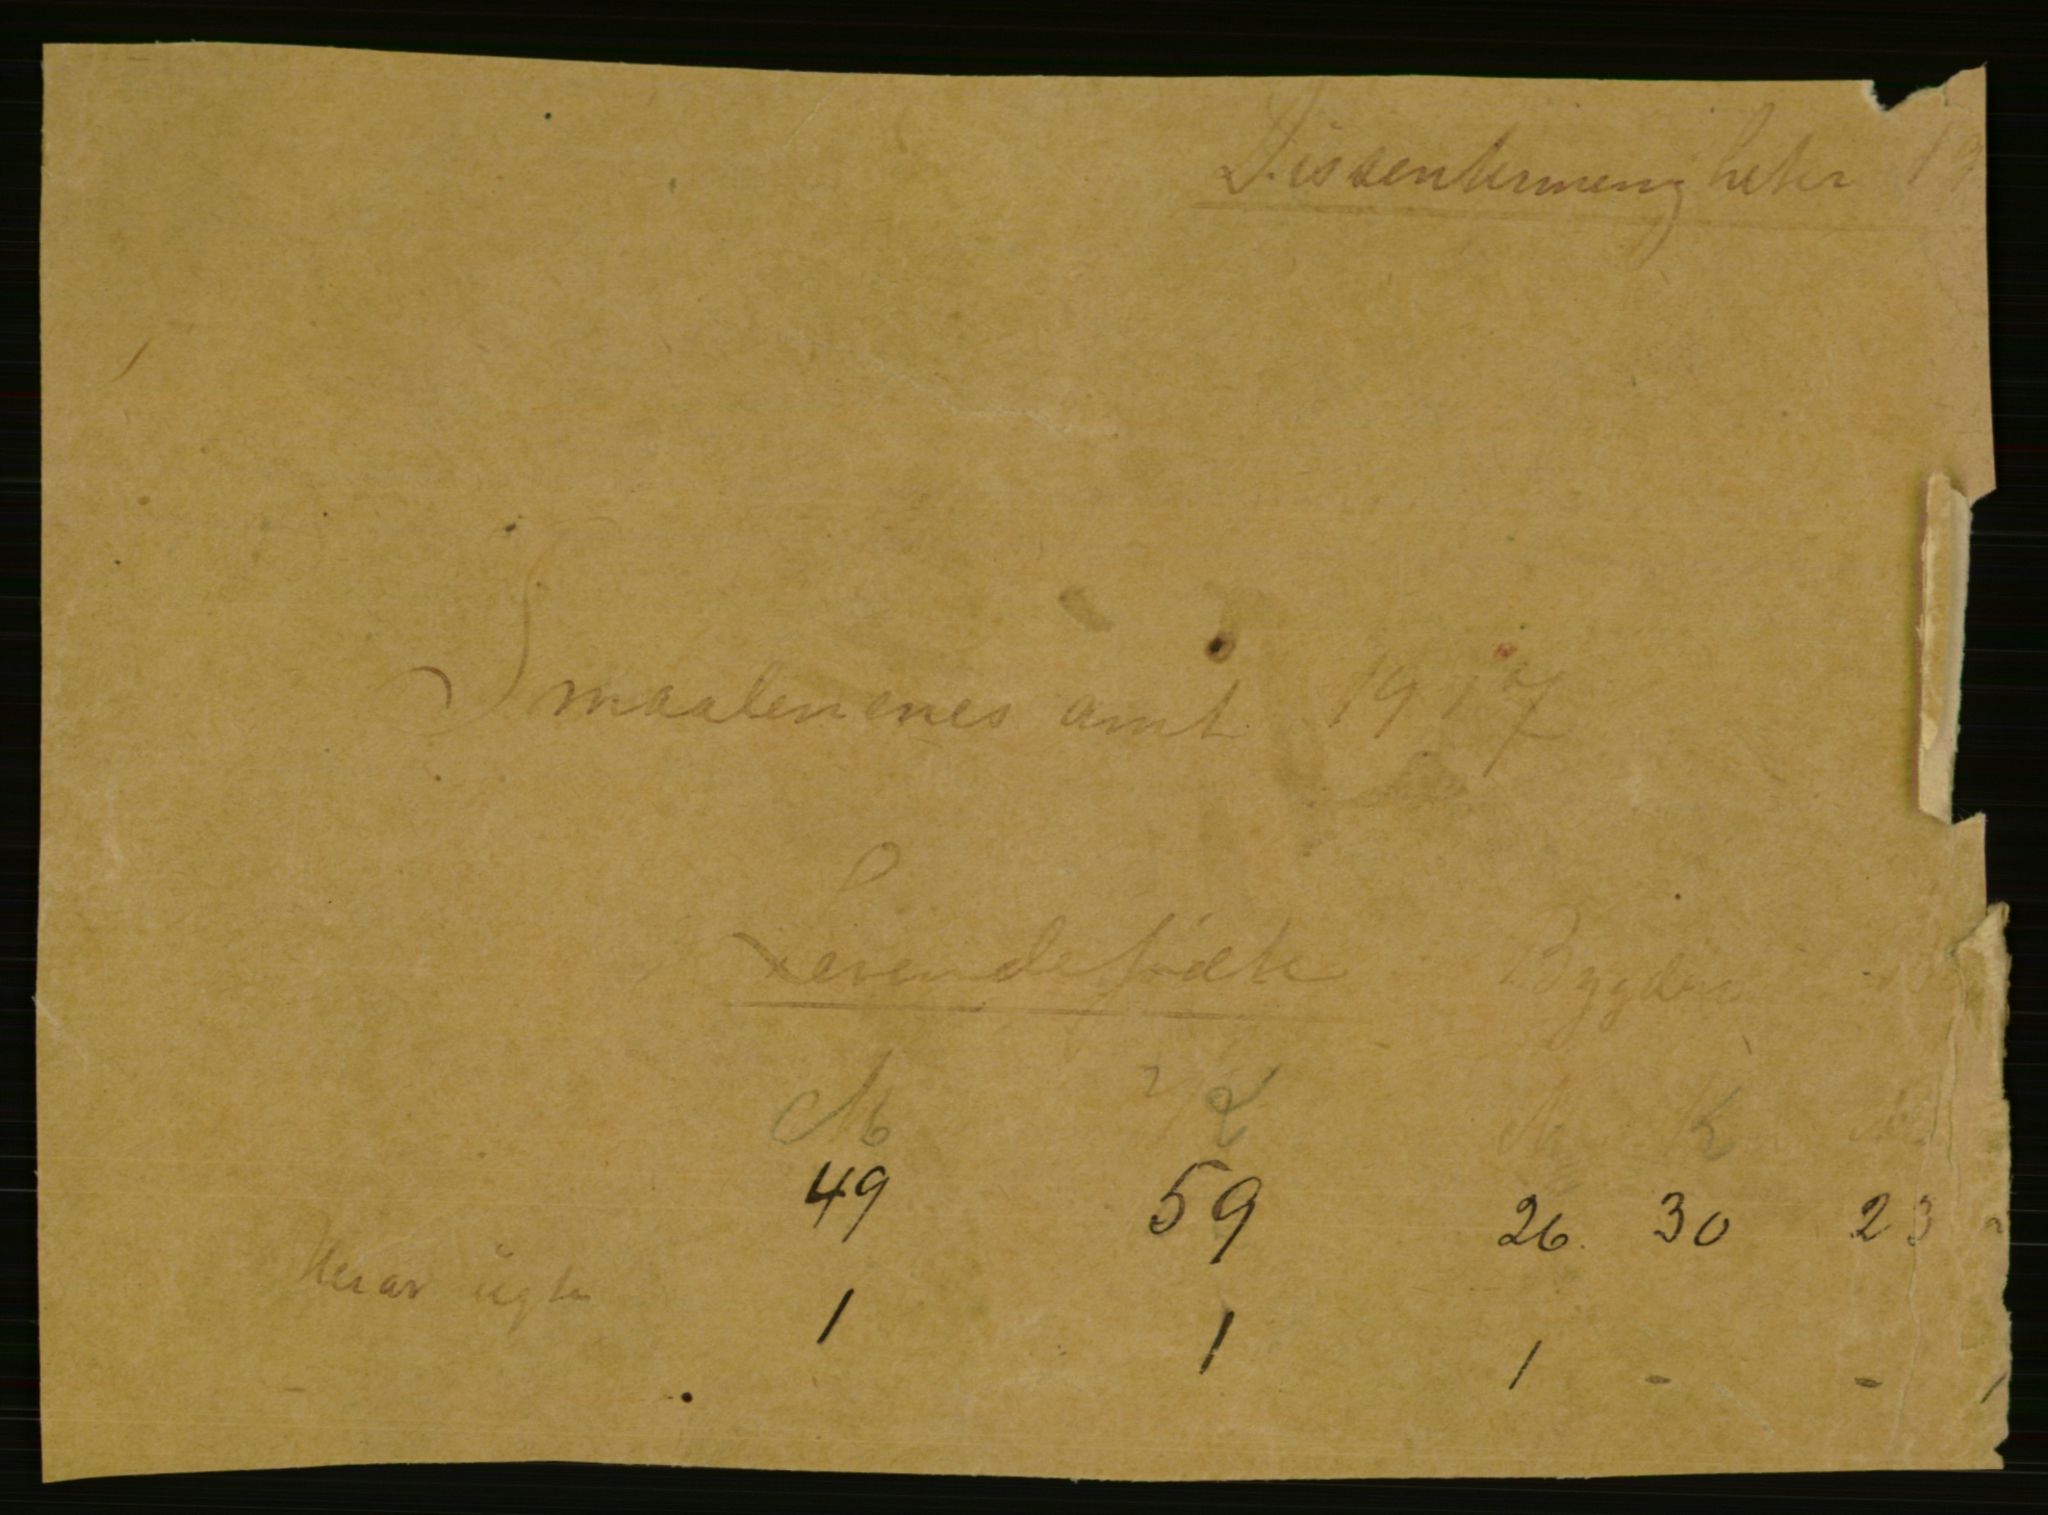 Dissentermenigheter 19
Smaalenenes amt 1917
Levendefødte Bygder
M K M K M
49 59 26 30 23
Herav ugte 1 1 1 - - 1